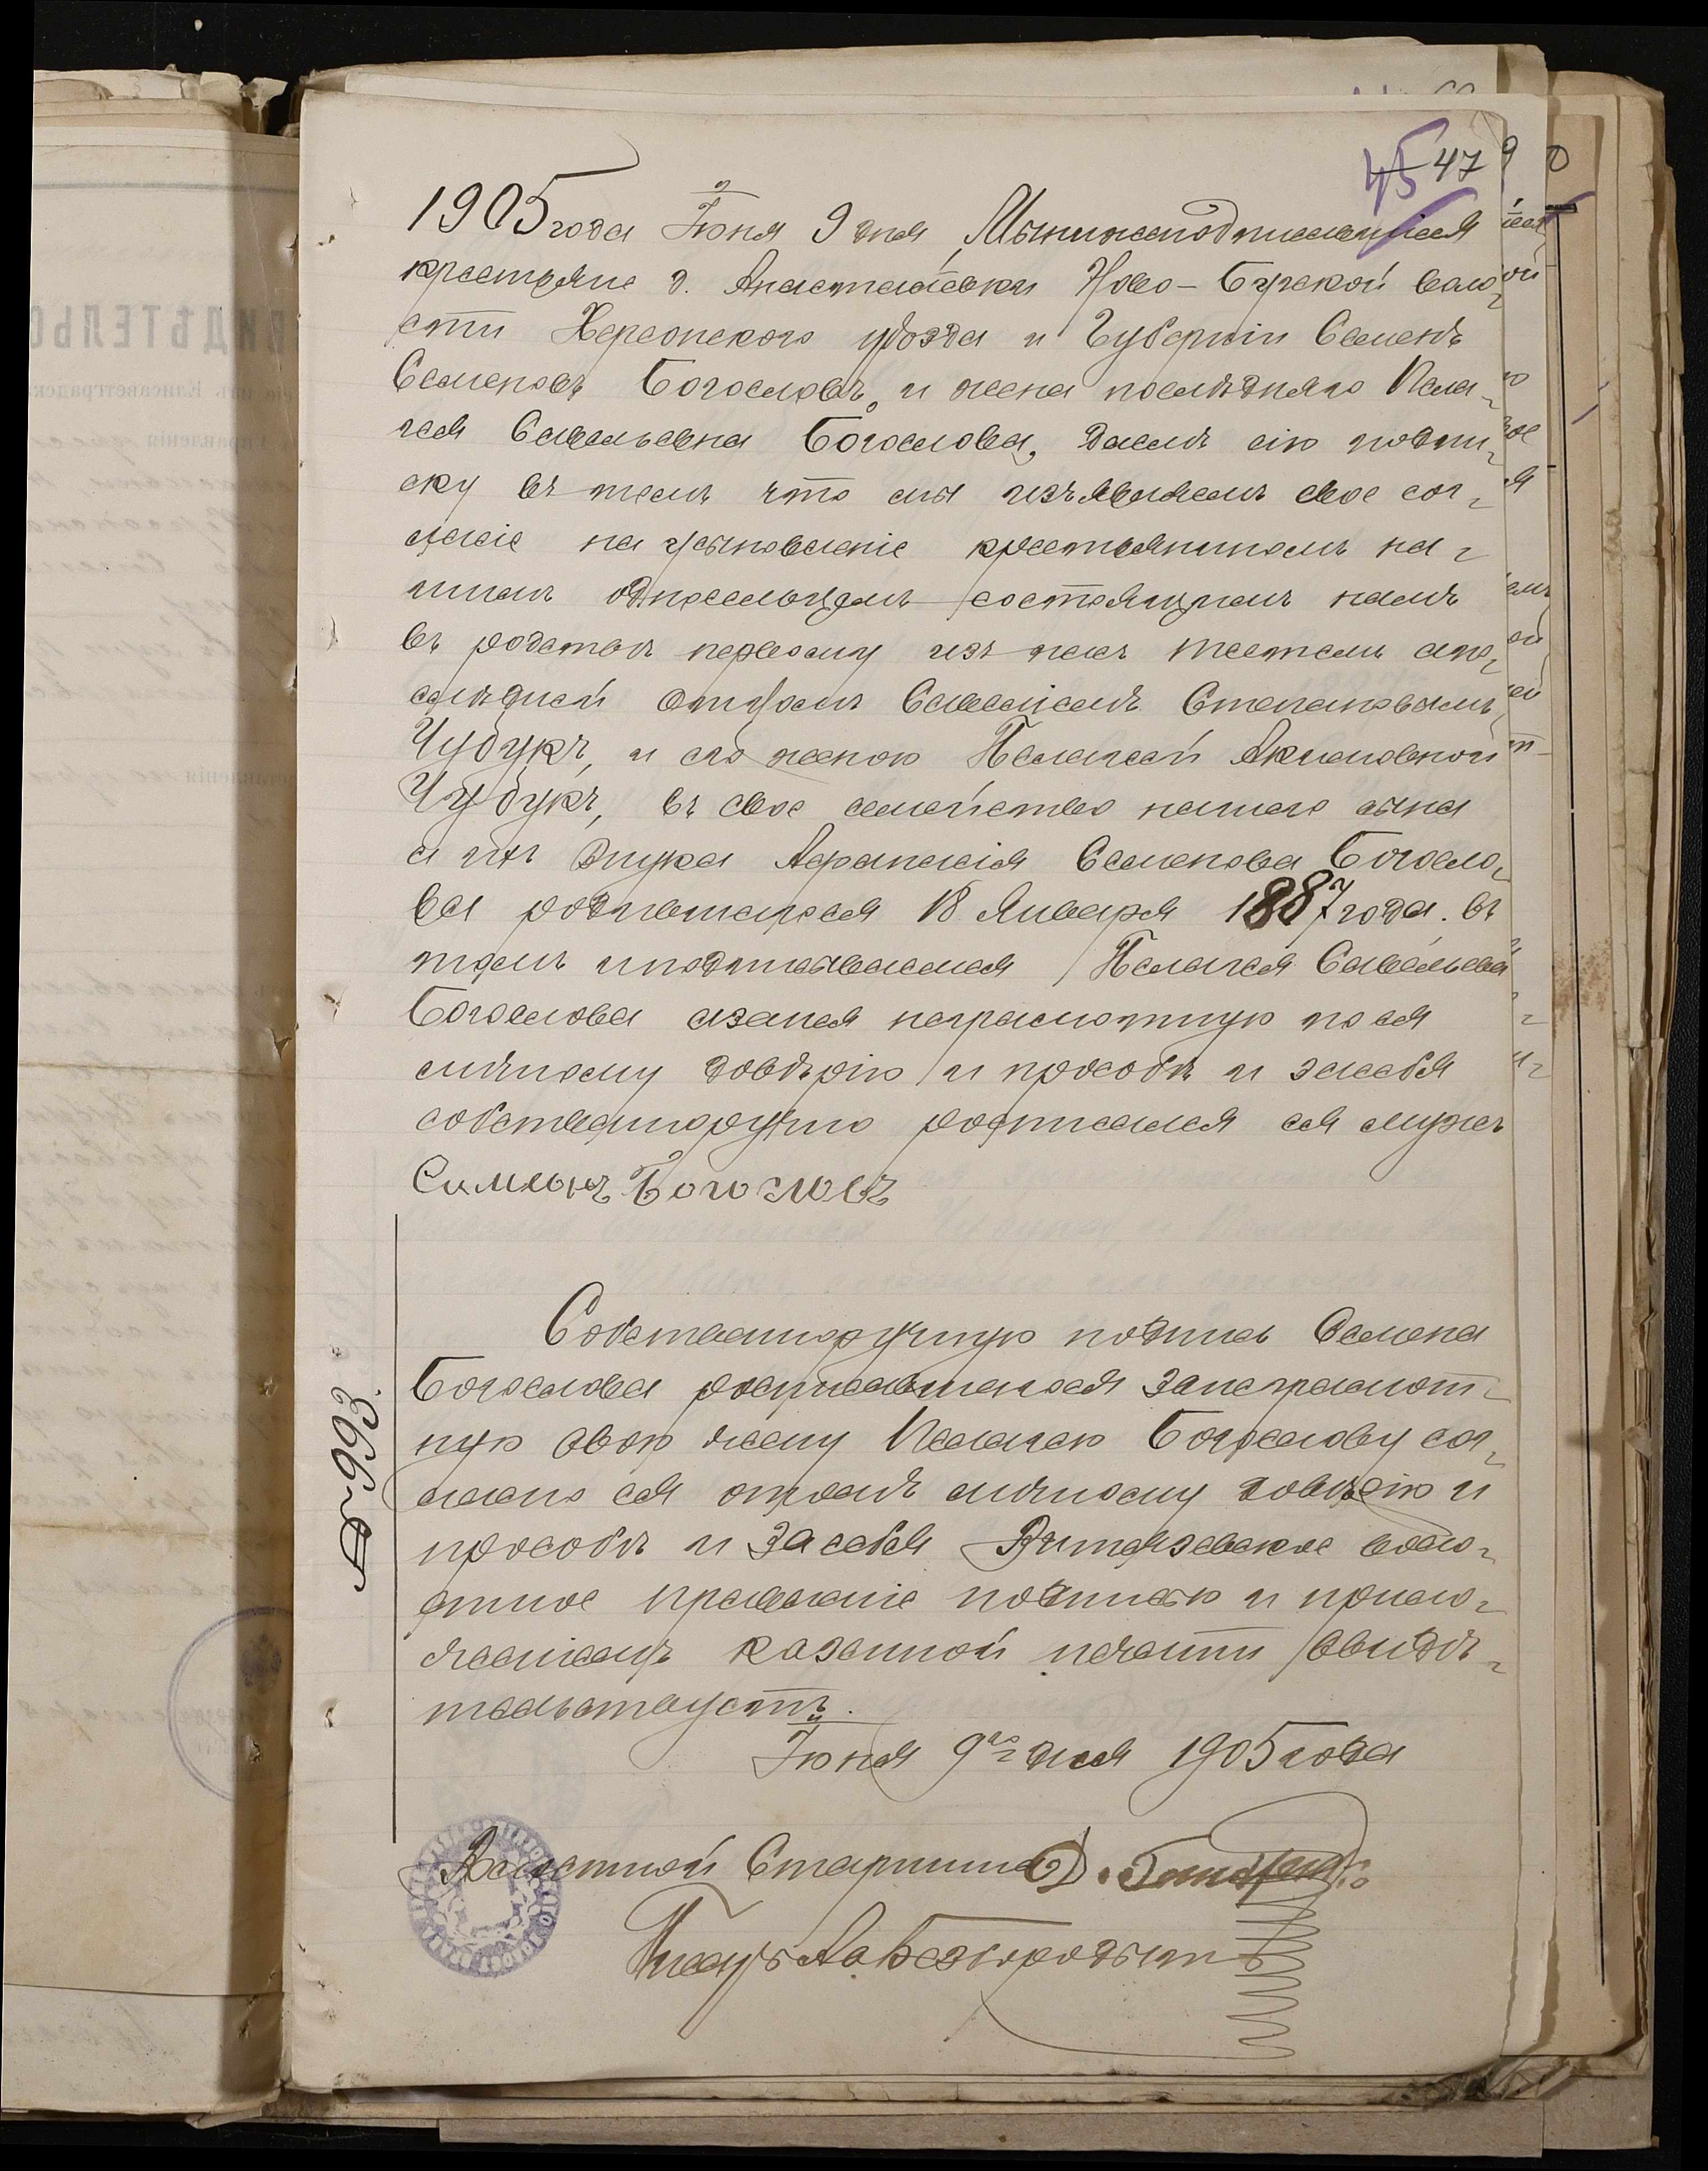 45 47
1905 года Іюня 9 дня, Мынижеподписавшіеся
крестьяне д. Анастасіевки Ново-Бугской воло-
сти Херсонскаго уѣзда и Губерніи Семенъ
Семеновъ Богословъ, и жена послѣдняго Пела-
гея Савельевна Богослова, даемъ сію подпи-
ску въ томъ что мы изъявляемъ свое сог-
ласіе на усыновленіе крестьяниномъ на-
шимъ односельцемъ состоящимъ намъ
въ родствѣ первому изъ нихъ тестемъ а по-
слѣдней отцомъ Савеліемъ Степановымъ
Чубукъ, и его женою Пелагеей Акимовной
Чубукъ, въ свое семейство нашего сына
а ихъ внука Афанасія Семенова Богосло-
ва родившагося 18 Января 1887 года. въ
томъ иподписываемся Пелагея Савельева
Богослова азанея неграмотную по ея
личному довѣрію и просьбѣ и засебя
собственноручно росписался ея мужъ
Симионъ Богословъ
Собственноручную подпись Семена
Богослова росписавшагося занеграмот-
ную свою жену Пелагею Богослову сог-
ласно ея отомъ личному довѣрію и
просьбѣ и засебя Витязевское воло-
стное правленіе подписью и прило-
женіемъ казенной печати свидѣ-
тельствуетъ.
Іюня 9го дня 1905 года
№ 993.
Волостной Старшина
Писарь